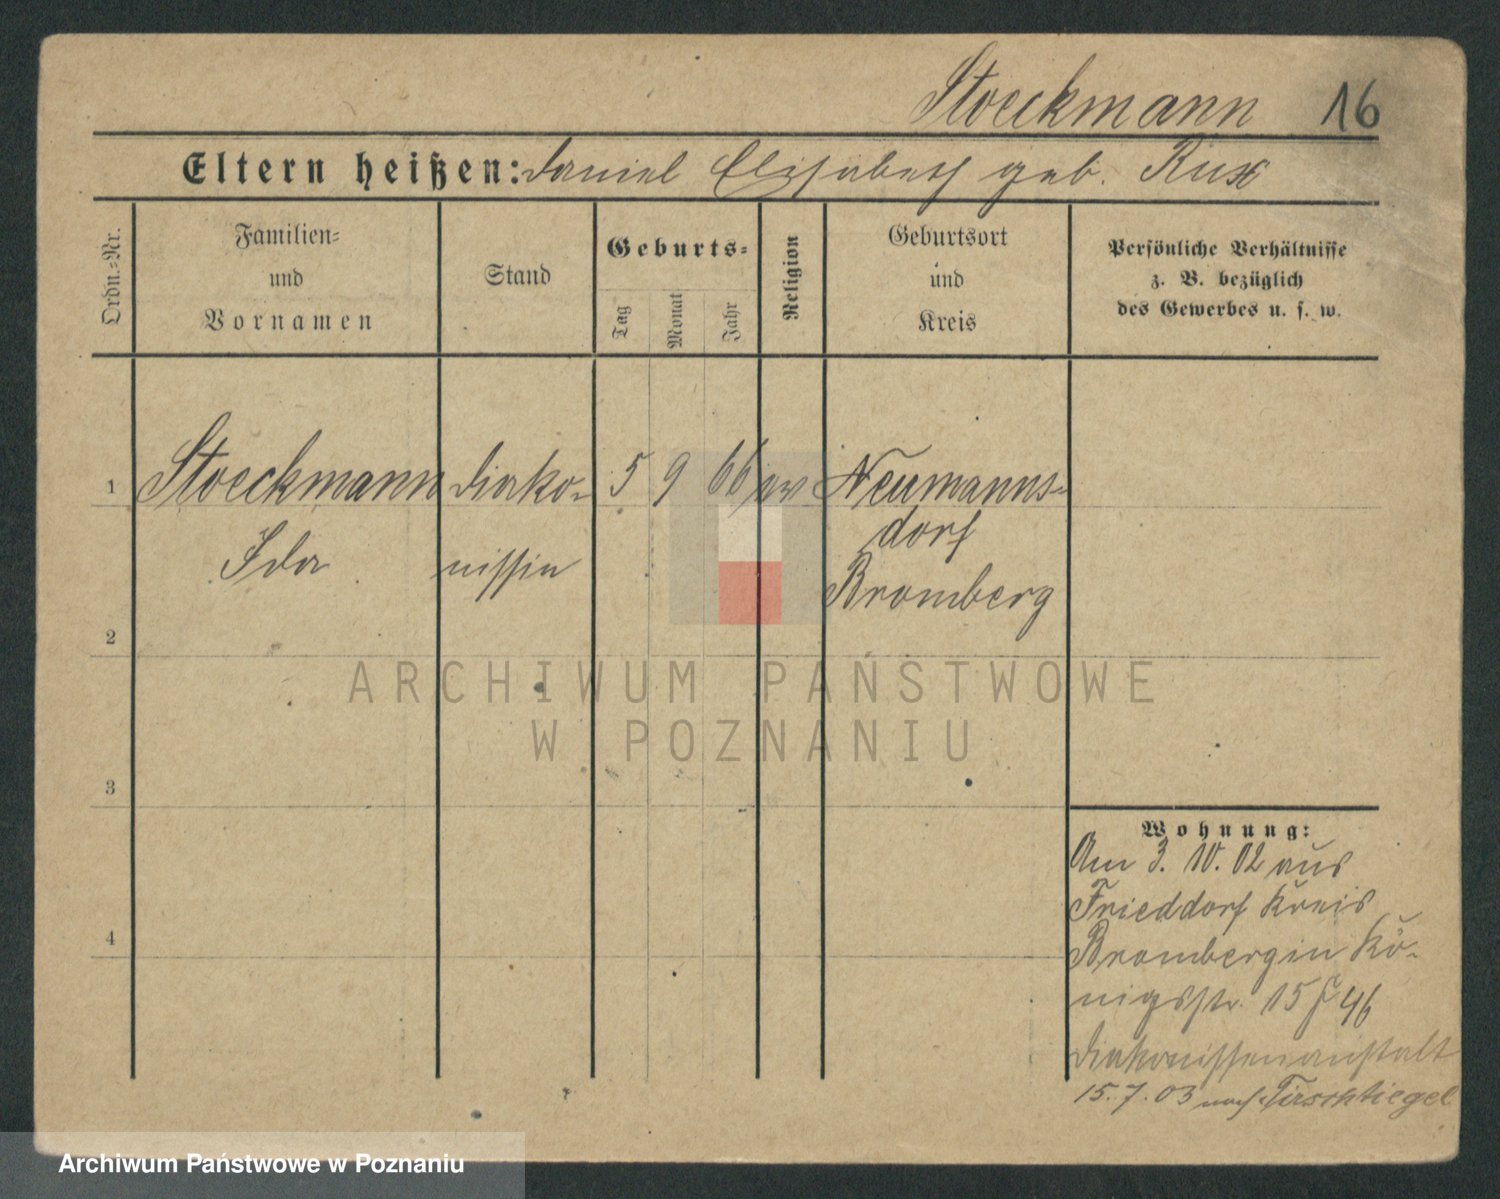 Stoeckmann 16
Eltern heißen: Daniel Elisabeth geb. Rux
Ordn.-Nr.
Familien-
und
Vornamen
Stand
Geburts-
Tag
Monat
Jahr
Religion
Geburtsort
und
Kreis
Persönliche Verhältnisse
z. B. bezüglich
des Gewerbes u. s. w.
1 Stoeckmann Diako- 5 9 66 ev Neumanns-
dorf
Ida nissin Bromberg
2
ARCHIWUM PAŃSTWOWE
W POZNANIU
3
Wohnung:
Am 3. 10. 02 aus
Frieddorf Kreis
4
Bromberg in Kö-
nigsstr. 15 J 46
Diakonissenanstalt
15.7.03 nach Tirschtiegel
Archiwum Państwowe w Poznaniu